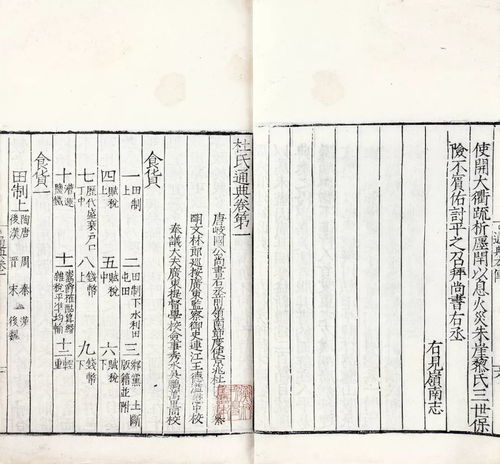 使開大衢疏析廛閈以息火災朱崖黎氏三世保
險不賓佑討平之召拜尚書右丞
右見嶺南志
杜氏通典卷第一
唐岐國公尚書右丞前嶺南節度使京兆杜
明文林郎巡按廣東監察御史連江王德溢
奉議大夫廣東提督學校僉事
食貨
一田制上
二田制下水利田 屯田
三鄉黨 土斷 版籍並附
四賦稅上
五賦稅中
六賦稅下
七歷代盛衰戶口 丁中
八錢幣上
九錢幣下
十漕運 鹽鐵
十一
雜稅 平準 均輸
十二輕重
食貨一
田制上 陶唐 周 秦 漢
後漢 晉 宋 後魏